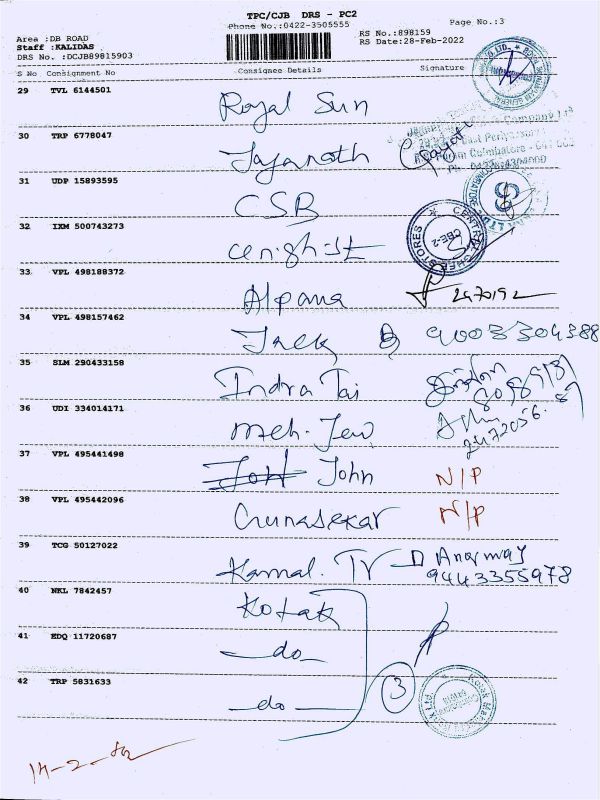 TPC/CJB DRS - PC2
Phone No.:0422-3505555
Page No.:3
Area :DB ROAD
Staff :KALIDAS
DRS No. :DCJB89815903
RS No.:898159
RS Date:28-Feb-2022
S No Consignment No Consignee Details Signature
29 TVL 6144501 Royal Sun
30 TRP 6778047 Jayanath
31 UDP 15893595 CSB
32 IXM 500743273
33 VPL 498188372 Alpana
34 VPL 498157462 Jack 9003304388
35 SLM 290433158 Indra Tai
36 UDI 334014171 Meh. Jew
2472056
37 VPL 495441498 John N/P
38 VPL 495442096 Gunasekar N/P
39 TCG 50127022 Kamal. Tr
9443355978
40 NKL 7842457 Kotak
41 EDQ 11720687 —do—
42 TRP 5831633 —do— 3